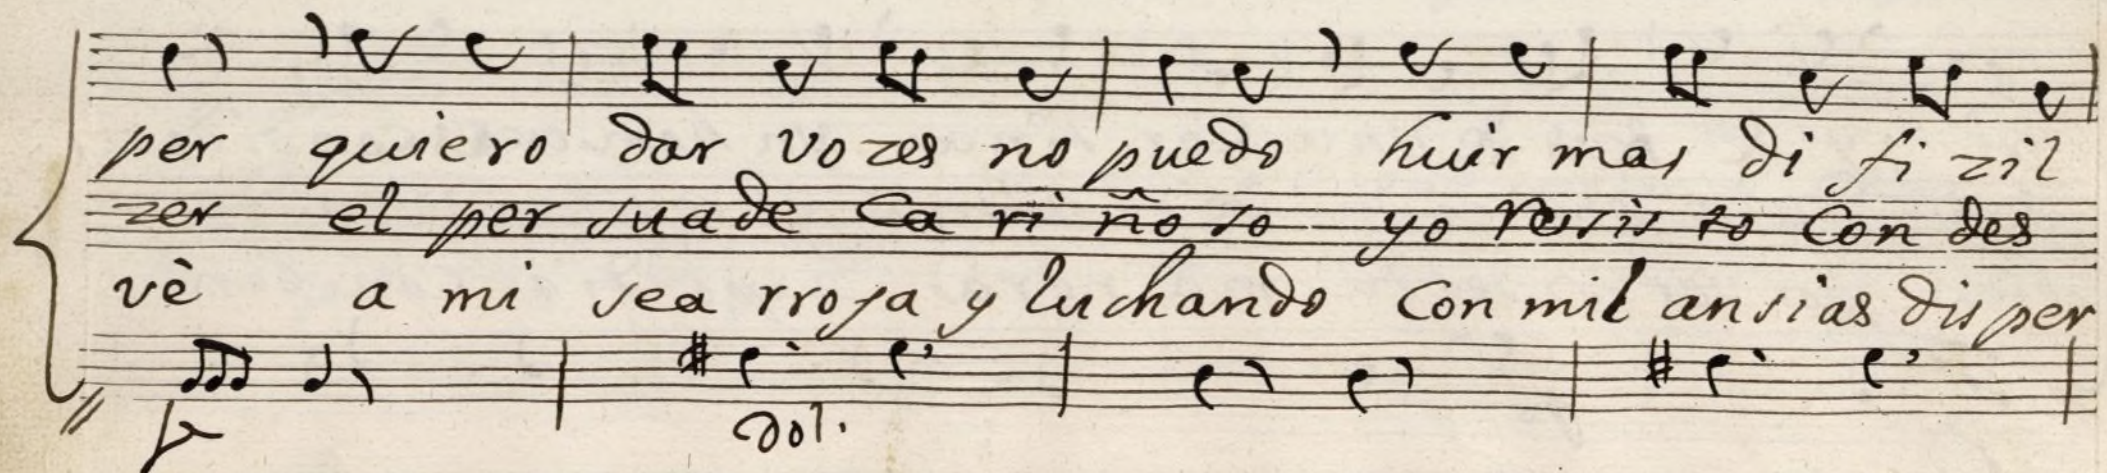 per quiero dar vozes no puedo huir mas di fi zil
zer el per suade Ca ri ño so yo resis to Con des
vè a mi sea rroja y luchando Con mil ansias dis per
dol.